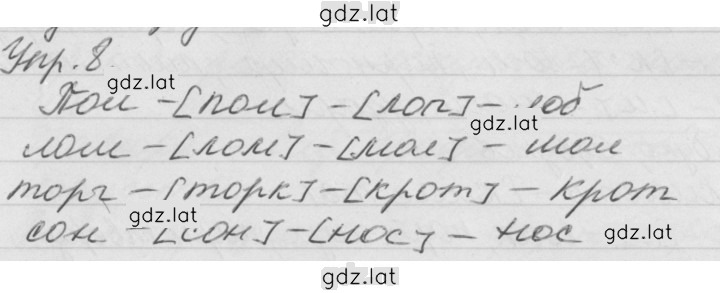 gdz.lat
Упр. 8.
gdz.lat
Пол – [пол] – [лоп] – лоб
gdz.lat
лом – [лом] – [мол] – мол
торг – [торк] – [крот] – крот
gdz.lat
сон – [сон] – [нос] – нос
gdz.lat
gdz.lat